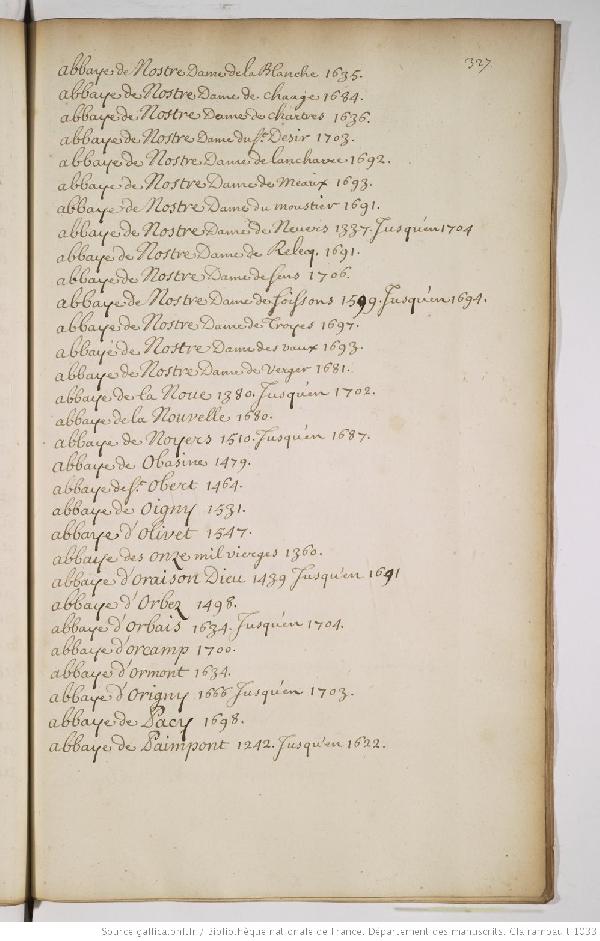 327
abbaye de Nostre Dame de la Blanche 1635.
abbaye de Nostre Dame de chaage 1684.
abbaye de Nostre Dame de chartres 1636.
abbaye de Nostre Dame du st. Desir 1703.
abbaye de Nostre Dame de lancharre 1692.
abbaye de Nostre Dame de Meaux 1693.
abbaye de Nostre Dame du moustier 1691.
abbaye de Nostre Dame de Nevers 1337. Jusqu'en 1704
abbaye de Nostre Dame de Relecq. 1691.
abbaye de Nostre Dame de sens 1706.
abbaye de Nostre Dame de soissons 1599. Jusqu'en 1694.
abbaye de Nostre Dame de Troyes 1697.
abbaye de Nostre Dame des vaux 1693.
abbaye de Nostre Dame de verger 1681.
abbaye de la Noue 1380. Jusqu'en 1702.
abbaye de la Nouvelle 1680.
abbaye de Noyers 1510. Jusqu'en 1687.
abbaye de Obasine 1479.
abbaye de st. Obert 1464.
abbaye de Oigny 1531.
abbaye d'Olivet 1547.
abbaye des onze mil vierges 1360.
abbaye d'oraison Dieu 1439 Jusqu'en 1691
abbaye d'Orbez 1498.
abbaye d'Orbais 1634. Jusqu'en 1704.
abbaye d'orcamp 1700.
abbaye d'ormont 1634.
abbaye d'Origny 1666 Jusqu'en 1703.
abbaye de Pacy 1698.
abbaye de Paimpont 1242. Jusqu'en 1622.
Source gallica.bnf.fr / Bibliothèque nationale de France. Département des manuscrits. Clairambault 1033